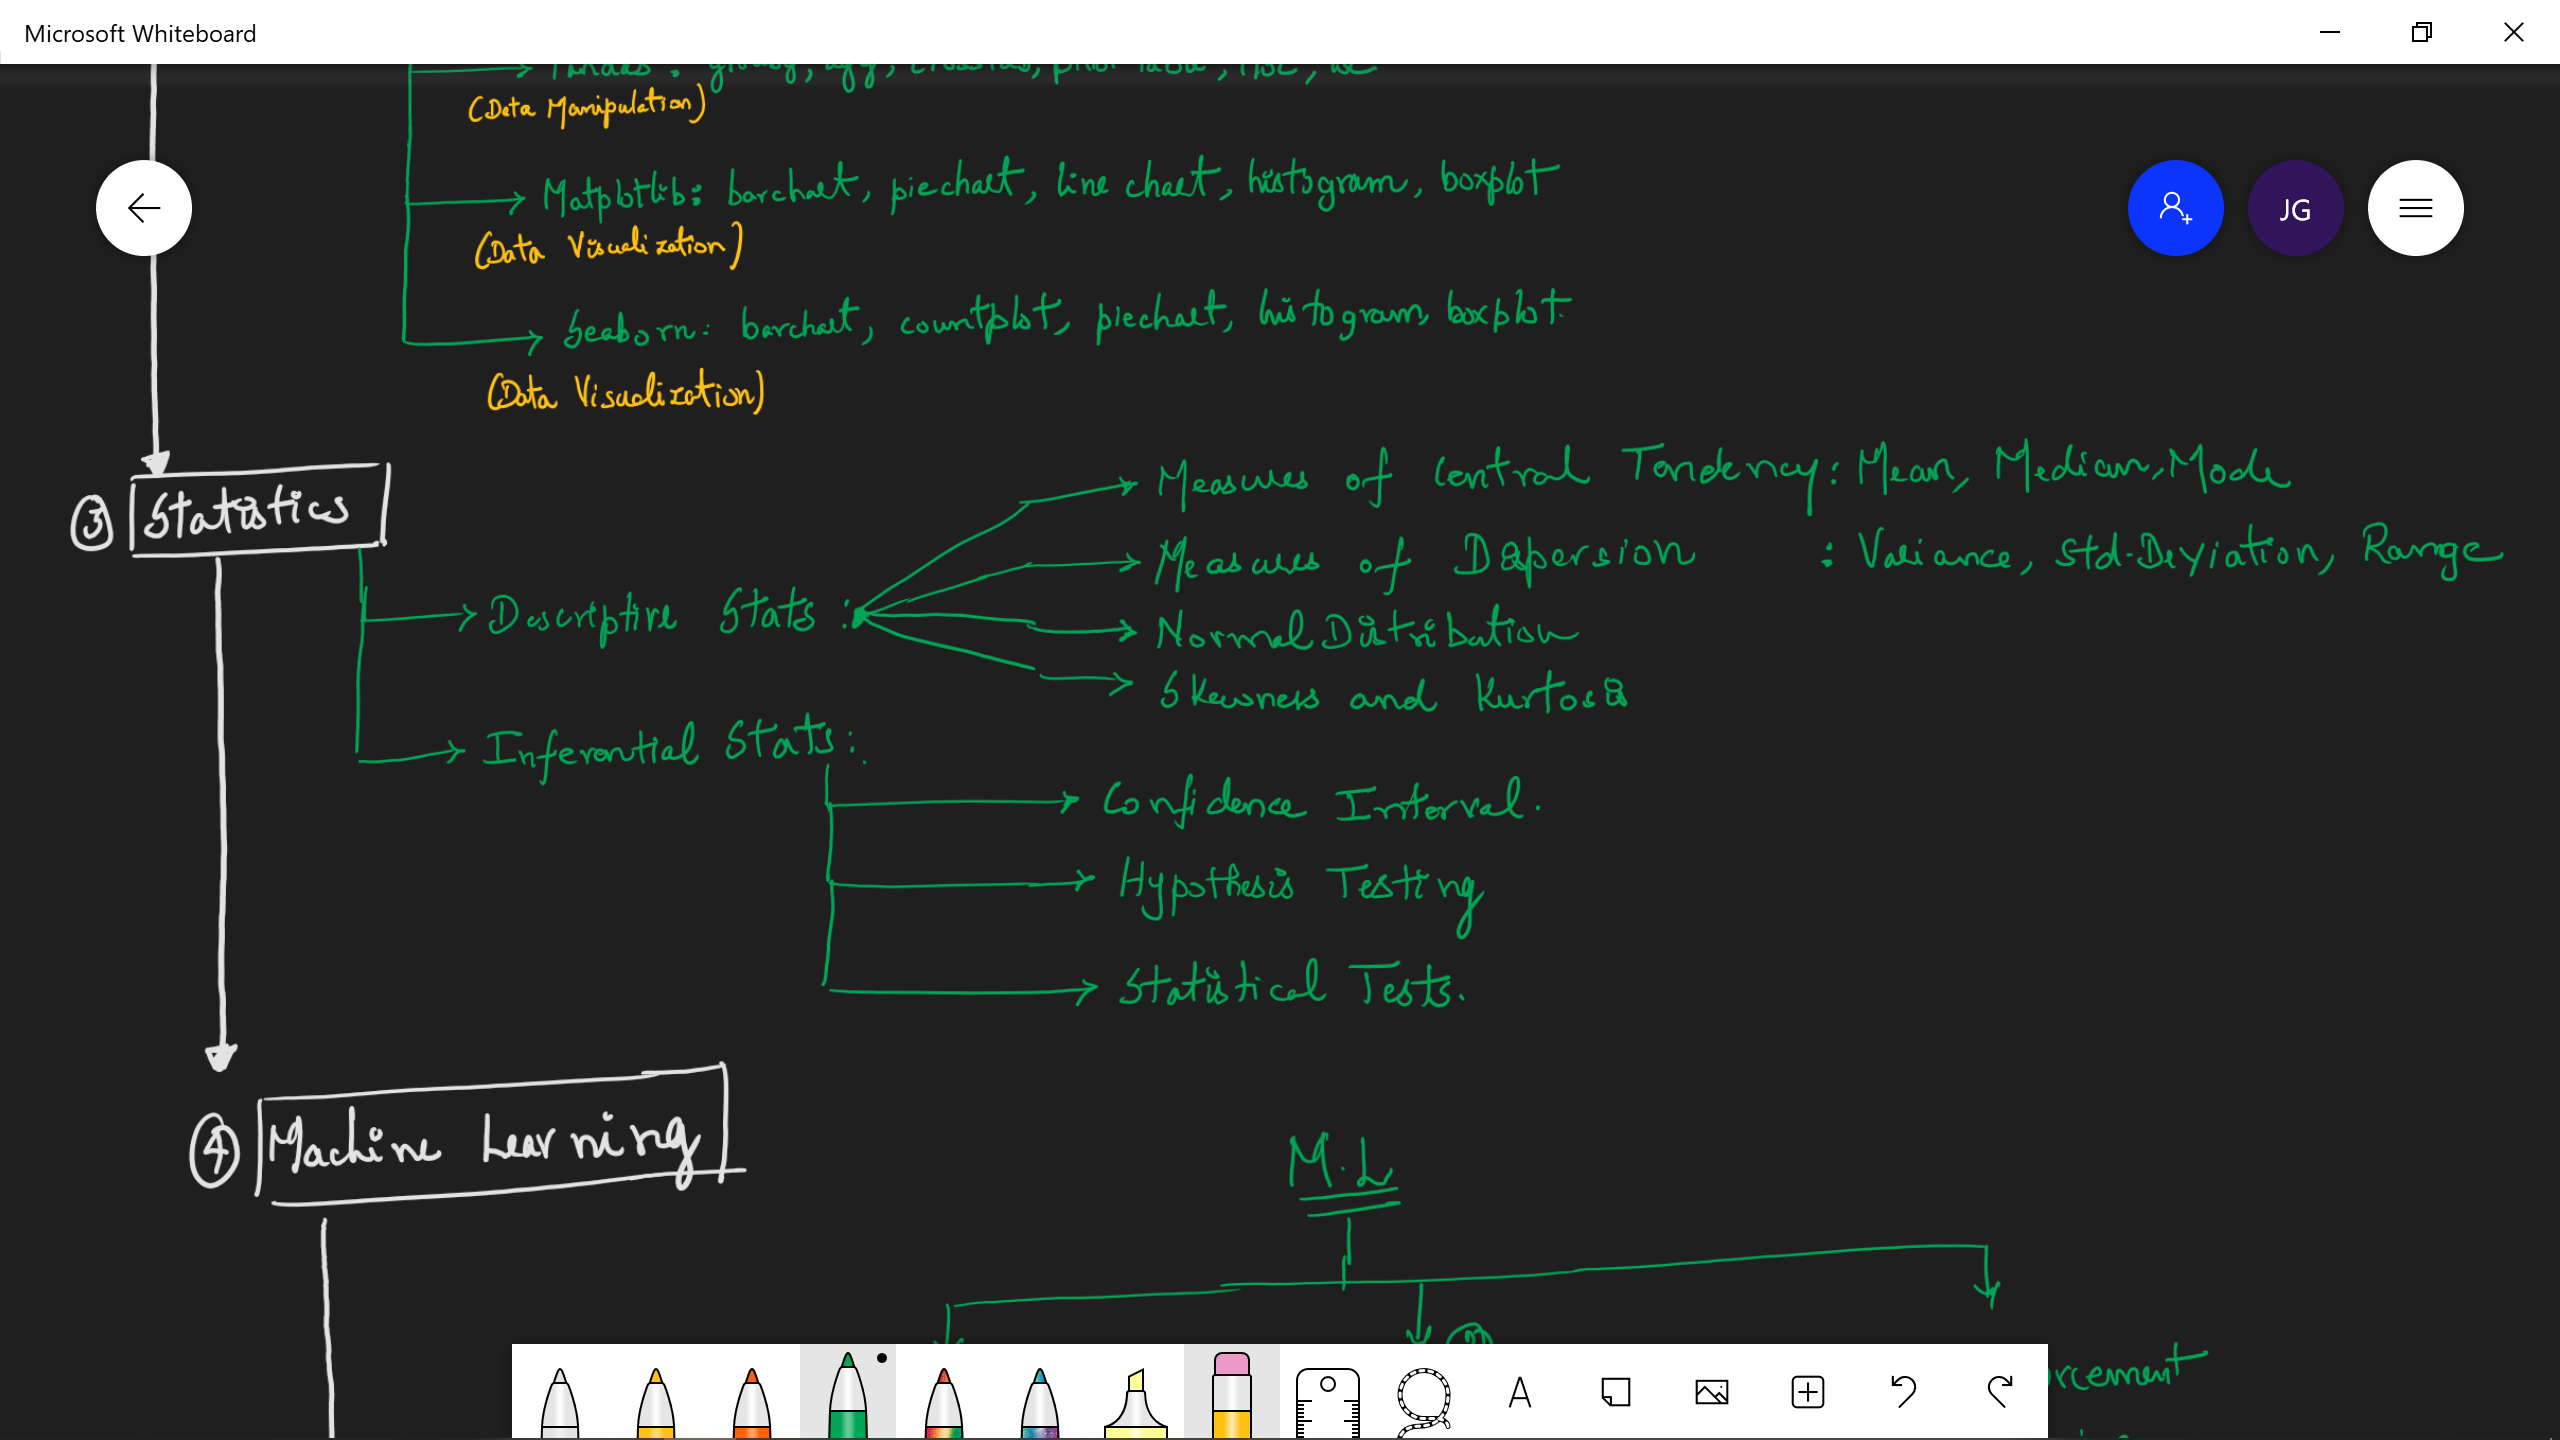 Microsoft Whiteboard
(Data Manipulation)
JG
Matplotlib: barchart, piechart, line chart, histogram, boxplot
(Data Visualization)
Seaborn: barchart, countplot, piechart, histogram, boxplot.
(Data Visualization)
③ Statistics
Descriptive Stats:
Measures of Central Tendency: Mean, Median, Mode
Measures of Dispersion : Variance, Std-Deviation, Range
Normal Distribution
Skewness and Kurtosis
Inferential Stats:
Confidence Interval.
Hypothesis Testing
Statistical Tests.
④ Machine Learning
M.L
rcement